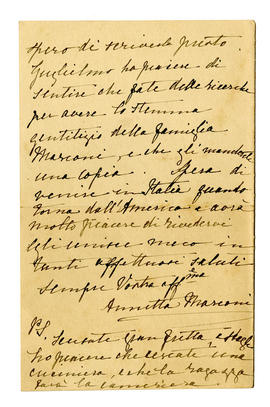 spero di scriverle presto.
Guglielmo ha piacere di
sentire che fate delle ricerche
per avere lo stemma
gentilizio della famiglia
Marconi, e che gli mandate
una copia. Spera di
venire in Italia quando
torna dall'America e avrà
molto piacere di rivedervi
Egli unisce meco in
tanti affettuosi saluti
Sempre Vostra aff.ma
Annetta Marconi
P.S.
Scusate gran fretta,
ho piacere che cercate una
cuciniera, e che la ragazza
farà la cameriera.